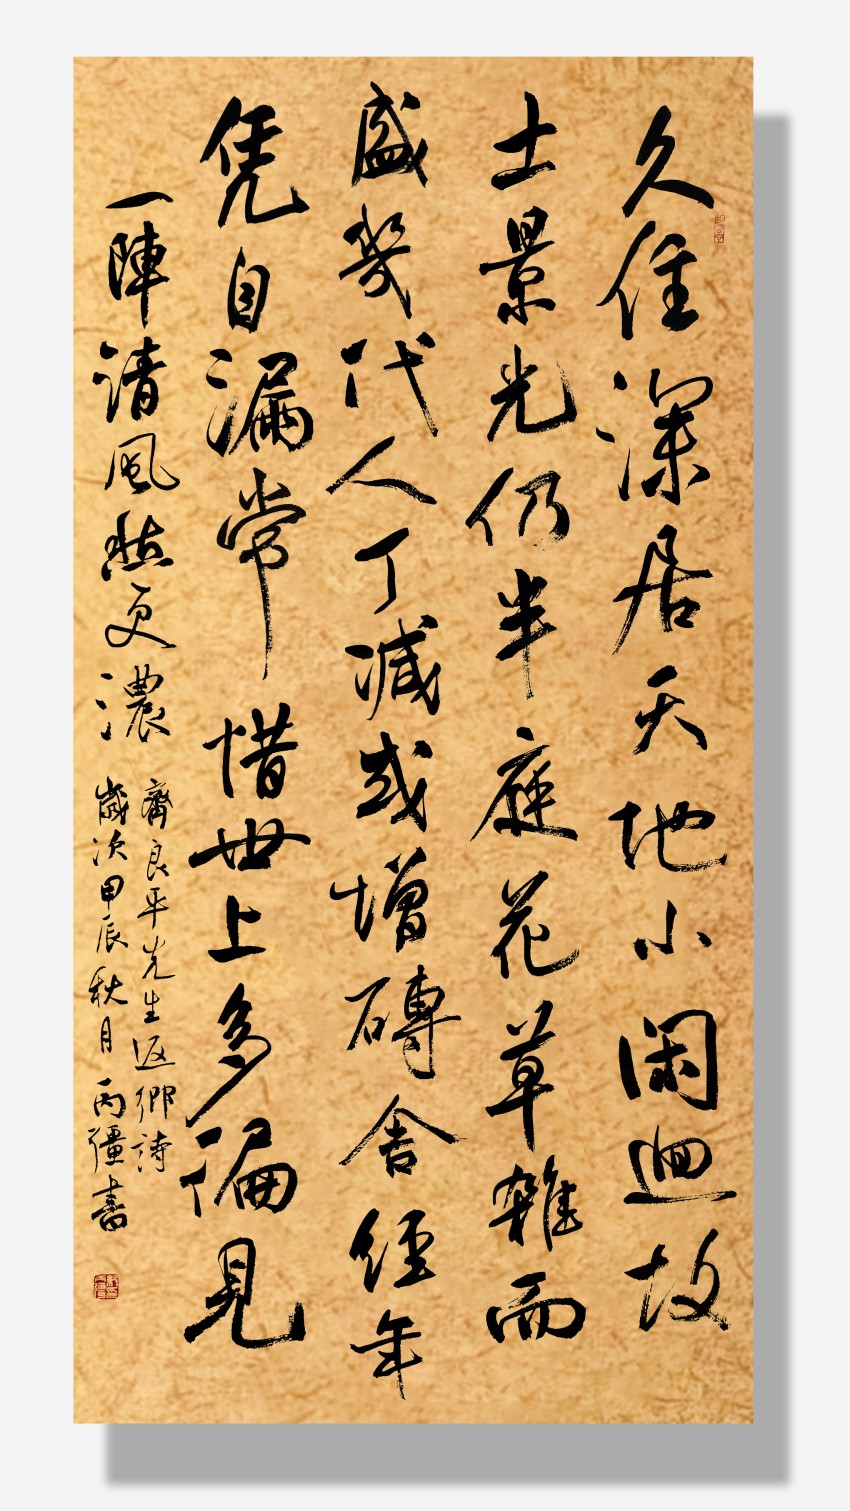 久住深居天地小闲迴故
土景光仍半庭花草雜而
盛幾代人丁減或增磚舍經年
凭自漏常惜世上多偏見
一陣清風愁更濃
齊良平先生返鄉詩
歲次甲辰秋月丙彊書